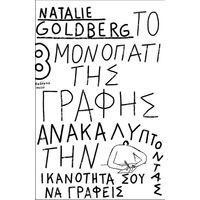 NATALIE
GOLDBERG ΤΟ
ΜΟΝΟΠΑΤΙ
ΤΗΣ
ΓΡΑΦΗΣ
ΑΝΑΚΑΛΥΠΤΟΝΤΑΣ
ΤΗΝ
ΙΚΑΝΟΤΗΤΑ ΣΟΥ
ΝΑ ΓΡΑΦΕΙΣ